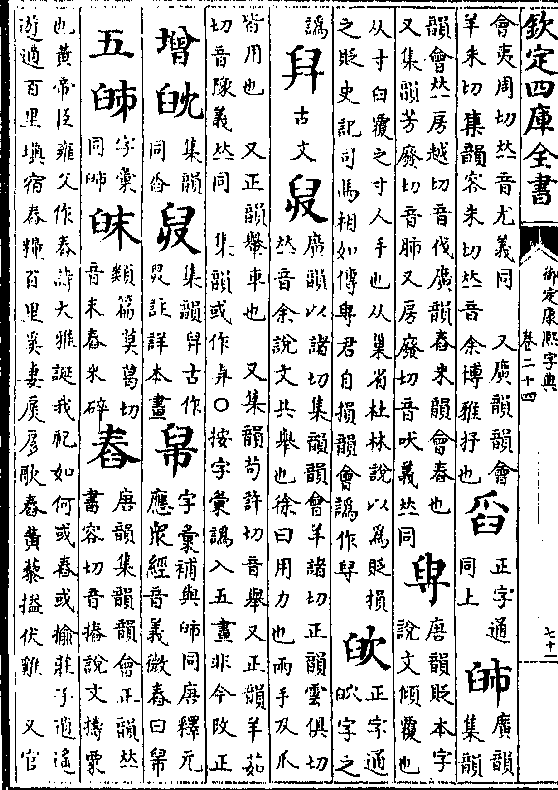 欽定四庫全書
御定康熙字典
卷二十四
七十一
會夷周切𠀤音尤義同　又廣韻韻會
羊朱切集韻容朱切𠀤音余博雅抒也
䍃
正字通
同上
𦥛
廣韻
集韻
韻會𠀤房越切音伐廣韻舂米韻會舂也
又集韻芳廢切音肺又房廢切音吠義𠀤同
𦥒
唐韻貶本字
說文傾覆也
从寸臼覆之寸人手也从巢省杜林說以爲貶損
之貶史記司馬相如傳𦥒君自損韻會譌作𦥑
正字通
𦥧字之
譌
舁
古文
𦥸
廣韻以諸切集韻韻會羊諸切正韻雲俱切
𠀤音余說文共舉也徐曰用力也兩手及爪
皆用也　又正韻舉車也　又集韻苟許切音舉又正韻羊茹
切音豫義𠀤同　集韻或作𢌱○按字彙譌入五畫非今改正
增
集韻
同臽
𦥸
集韻舁古作
𦥸註詳本畫
𦥎
字彙補與𦥛同唐釋元
應衆經音義微舂曰𦥎
五
𦥛
字彙
同𦥛
𦥦
類篇莫葛切
音末舂米碎
舂
唐韻集韻韻會正韻𠀤
書容切音摏說文擣粟
也黄帝臣雍父作舂詩大雅誕我祀如何或舂或揄莊子逍遙
遊適百里塡宿舂糧百里奚妻扊扅歌舂黄藜搤伏雞　又官